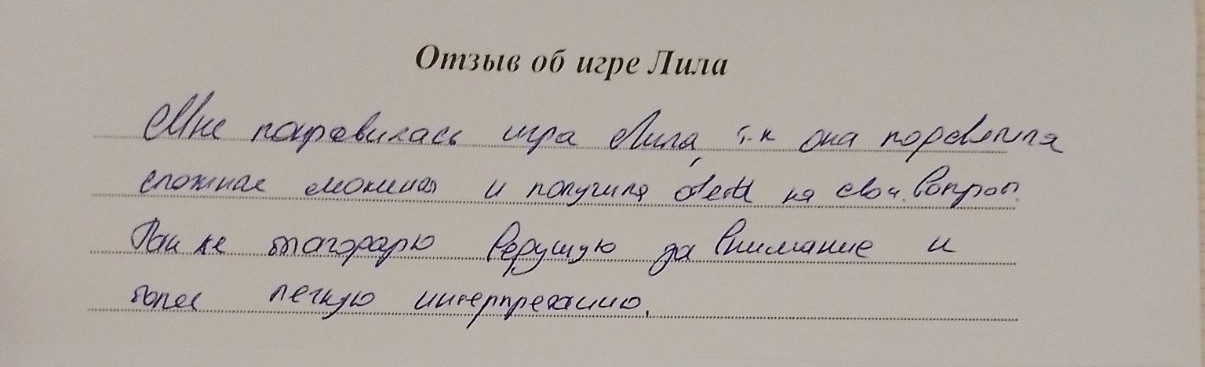 Отзыв об игре Лила
Мне понравилась игра Лила, т.к она
сложные и получила ответ на свой вопрос.
Также благодарю Ведущую за внимание и
более легкую интерпретацию.